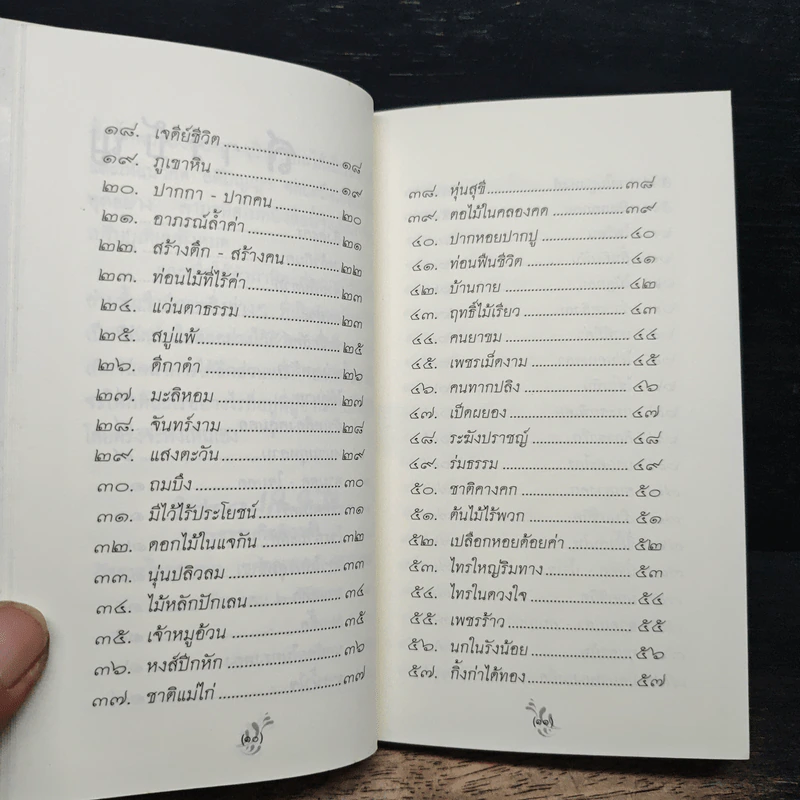 ๑๘. เจดีย์ชีวิต..........๑๘
๑๙. ภูเขาหิน..........๑๙
๒๐. ปากกา - ปากคน..........๒๐
๒๑. อาภรณ์ล้ำค่า..........๒๑
๒๒. สร้างตึก - สร้างคน..........๒๒
๒๓. ท่อนไม้ที่ไร้ค่า..........๒๓
๒๔. แว่นตาธรรม..........๒๓
๒๕. สบู่แพ้..........๒๕
๒๖. ตีกาดำ..........๒๖
๒๗. มะลิหอม..........๒๗
๒๘. จันทร์งาม..........๒๘
๒๙. แสงตะวัน..........๒๙
๓๐. ถมบึง..........๓๐
๓๑. มีไว้ไร้ประโยชน์..........๓๑
๓๒. ดอกไม้ในแจกัน..........๓๒
๓๓. นุ่นปลิวลม..........๓๓
๓๔. ไม้หลักปักเลน..........๓๔
๓๕. เจ้าหมูอ้วน..........๓๕
๓๖. หงส์ปีกหัก..........๓๖
๓๗. ชาติแม่ไก่..........๓๗
(๑๐)
๓๘. หุ่นสุขี..........๓๘
๓๙. ตอไม้ในคลองคด..........๓๙
๔๐. ปากหอยปากปู..........๔๐
๔๑. ท่อนฟืนชีวิต..........๔๑
๔๒. บ้านกาย..........๔๒
๔๓. ฤทธิ์ไม้เรียว..........๔๓
๔๔. คนยาขม..........๔๔
๔๕. เพชรเม็ดงาม..........๔๕
๔๖. คนทากปลิง..........๔๖
๔๗. เป็ดผยอง..........๔๗
๔๘. ระฆังปราชญ์..........๔๘
๔๙. ร่มธรรม..........๔๙
๕๐. ชาติคางคก..........๕๐
๕๑. ต้นไม้ไร้พวก..........๕๑
๕๒. เปลือกหอยด้อยค่า..........๕๒
๕๓. ไทรใหญ่ริมทาง..........๕๓
๕๔. ไทรในดวงใจ..........๕๔
๕๕. เพชรร้าว..........๕๕
๕๖. นกในรังน้อย..........๕๖
๕๗. กิ้งก่าได้ทอง..........๕๗
(๑๑)